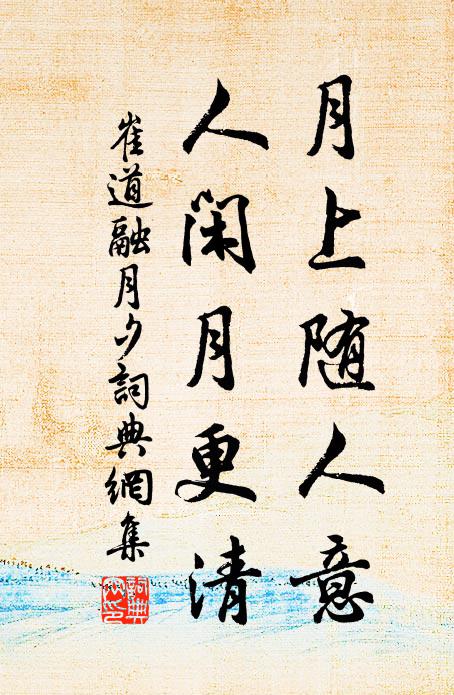 月上随人意
人闲月更清
崔道融月夕詞典網集